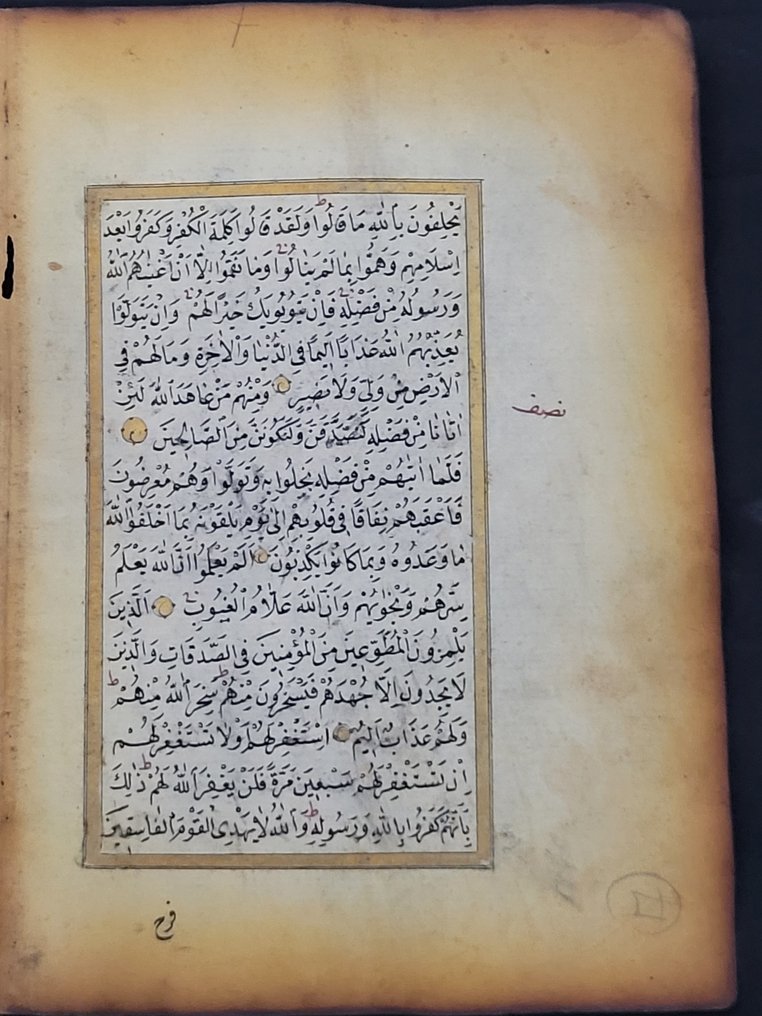 يَحْلِفُونَ بِاللّٰهِ مَا قَالُوا ط وَلَقَدْ قَالُوا كَلِمَةَ الْكُفْرِ وَكَفَرُوا بَعْدَ
اِسْلَامِهِمْ وَهَمُّوا بِمَا لَمْ يَنَالُوا ج وَمَا نَقَمُوا اِلَّا اَنْ اَغْنٰيهُمُ اللّٰهُ
وَرَسُولُهُ مِنْ فَضْلِهِ ج فَاِنْ يَتُوبُوا يَكُ خَيْرًا لَهُمْ ج وَاِنْ يَتَوَلَّوْا
يُعَذِّبْهُمُ اللّٰهُ عَذَابًا اَلِيمًا فِي الدُّنْيَا وَالْاٰخِرَةِ وَمَا لَهُمْ فِي
الْاَرْضِ مِنْ وَلِيٍّ وَلَا نَصِيرٍ وَمِنْهُمْ مَنْ عَاهَدَ اللّٰهَ لَئِنْ
نصف
اٰتَانَا مِنْ فَضْلِهِ لَنَصَّدَّقَنَّ وَلَنَكُونَنَّ مِنَ الصَّالِحِينَ
فَلَمَّا اٰتٰيهُمْ مِنْ فَضْلِهِ بَخِلُوا بِهِ وَتَوَلَّوْا وَهُمْ مُعْرِضُونَ
فَاَعْقَبَهُمْ نِفَاقًا فِي قُلُوبِهِمْ اِلٰى يَوْمِ يَلْقَوْنَهُ بِمَا اَخْلَفُوا اللّٰهَ
مَا وَعَدُوهُ وَبِمَا كَانُوا يَكْذِبُونَ اَلَمْ يَعْلَمُوا اَنَّ اللّٰهَ يَعْلَمُ
سِرَّهُمْ وَنَجْوٰيهُمْ وَاَنَّ اللّٰهَ عَلَّامُ الْغُيُوبِ ج اَلَّذِينَ
يَلْمِزُونَ الْمُطَّوِّعِينَ مِنَ الْمُؤْمِنِينَ فِي الصَّدَقَاتِ وَالَّذِينَ
لَا يَجِدُونَ اِلَّا جُهْدَهُمْ فَيَسْخَرُونَ مِنْهُمْ ط سَخِرَ اللّٰهُ مِنْهُمْ ط
وَلَهُمْ عَذَابٌ اَلِيمٌ اِسْتَغْفِرْ لَهُمْ اَوْ لَا تَسْتَغْفِرْ لَهُمْ
اِنْ تَسْتَغْفِرْ لَهُمْ سَبْعِينَ مَرَّةً فَلَنْ يَغْفِرَ اللّٰهُ لَهُمْ ط ذٰلِكَ
بِاَنَّهُمْ كَفَرُوا بِاللّٰهِ وَرَسُولِهِ ط وَاللّٰهُ لَا يَهْدِي الْقَوْمَ الْفَاسِقِينَ
فرح